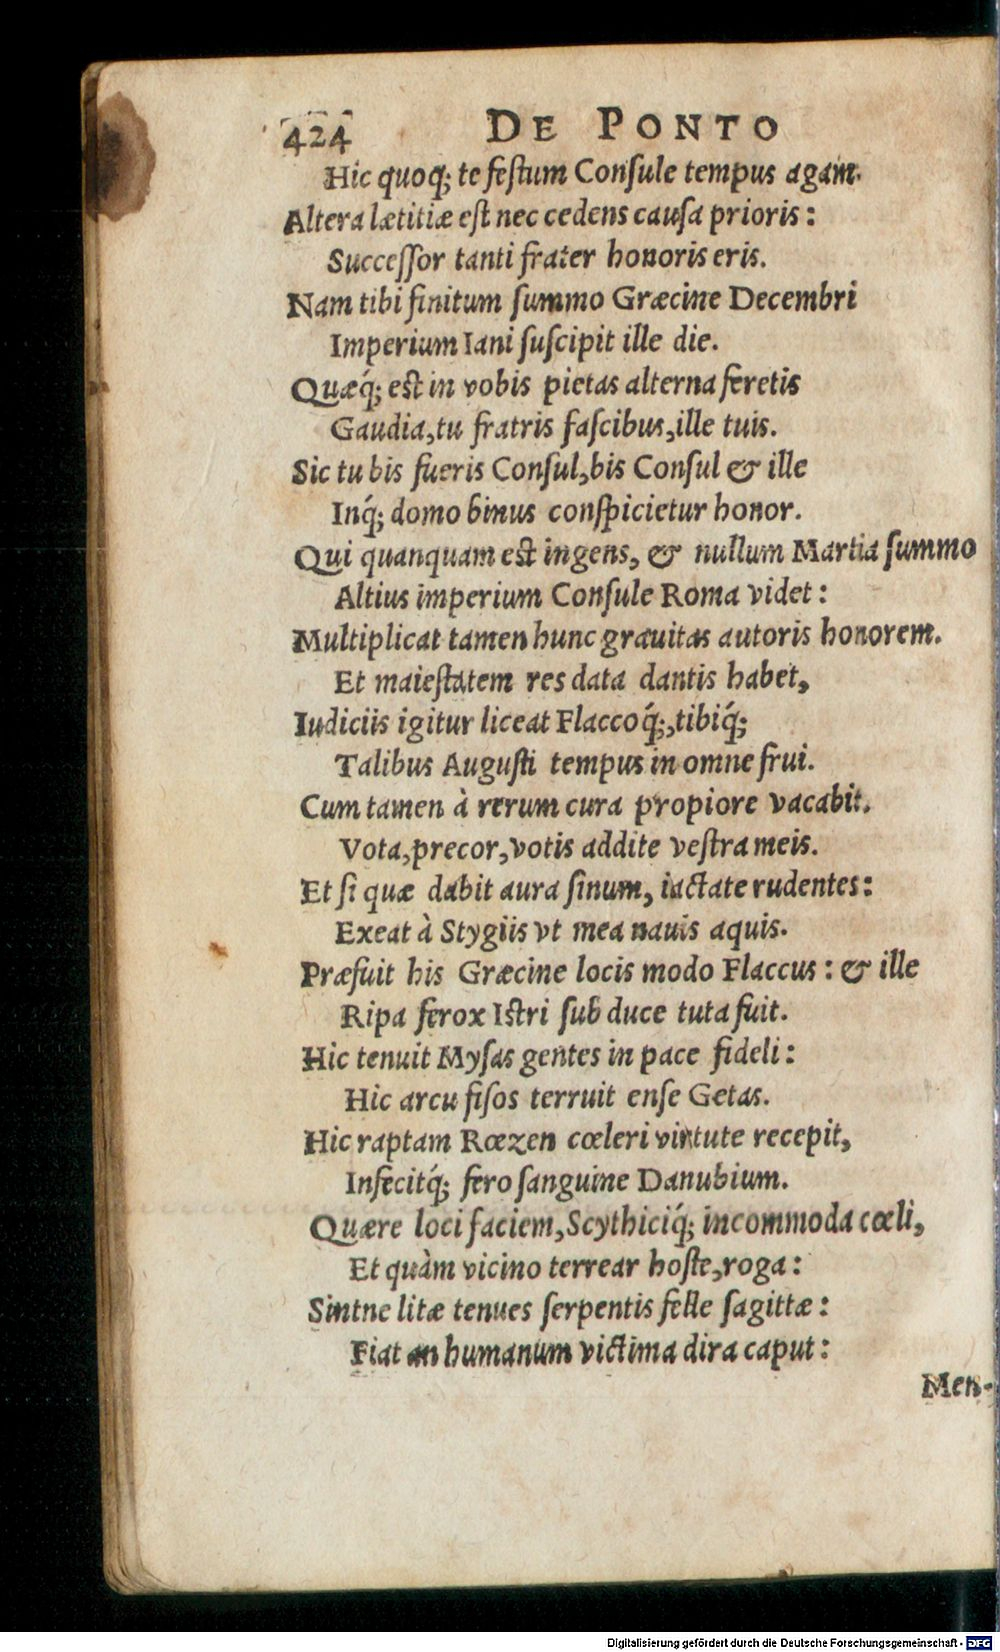 424 DE PONTO
Hic quoq; te feſtum Conſule tempus agam.
Altera lætitiæ eſt nec cedens cauſa prioris:
Succeſſor tanti frater honoris eris.
Nam tibi finitum ſummo Græcine Decembri
Imperium Iani ſuſcipit ille die.
Quæq́; est in vobis pietas alterna feretis
Gaudia, tu fratris faſcibus, ille tuis.
Sic tu bis fueris Conſul, bis Conſul & ille
Inq́; domo binus conſpicietur honor.
Qui quanquam est ingens, & nullum Martia ſummo
Altius imperium Conſule Roma videt:
Multiplicat tamen hunc grauitas autoris honorem.
Et maieſtatem res data dantis habet,
Iudiciis igitur liceat Flaccoq́;, tibiq́;
Talibus Auguſti tempus in omne frui.
Cum tamen à rerum cura propiore vacabit.
Vota, precor, votis addite veſtra meis.
Et ſi quæ dabit aura ſinum, iactate rudentes:
Exeat à Stygiis vt mea nauis aquis.
Præfuit his Græcine locis modo Flaccus: & ille
Ripa ferox Istri ſub duce tuta fuit.
Hic tenuit Myſas gentes in pace fideli:
Hic arcu fiſos terruit enſe Getas.
Hic raptam Rœzen cœleri virtute recepit,
Infecitq́; fero ſanguine Danubium.
Quære loci faciem, Scythiciq́; incommoda cœli,
Et quàm vicino terrear hoſte, roga:
Sintne litæ tenues ſerpentis felle ſagittæ:
Fiat an humanum victima dira caput:
Men-
Digitalisierung gefördert durch die Deutsche Forschungsgemeinschaft - DFG